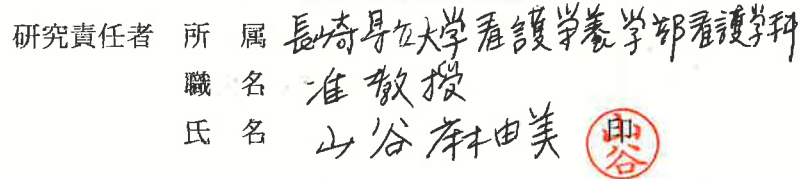 研究責任者 所属 長崎県立大学看護栄養学部看護学科
職名 准教授
氏名 山谷麻由美 印 山谷